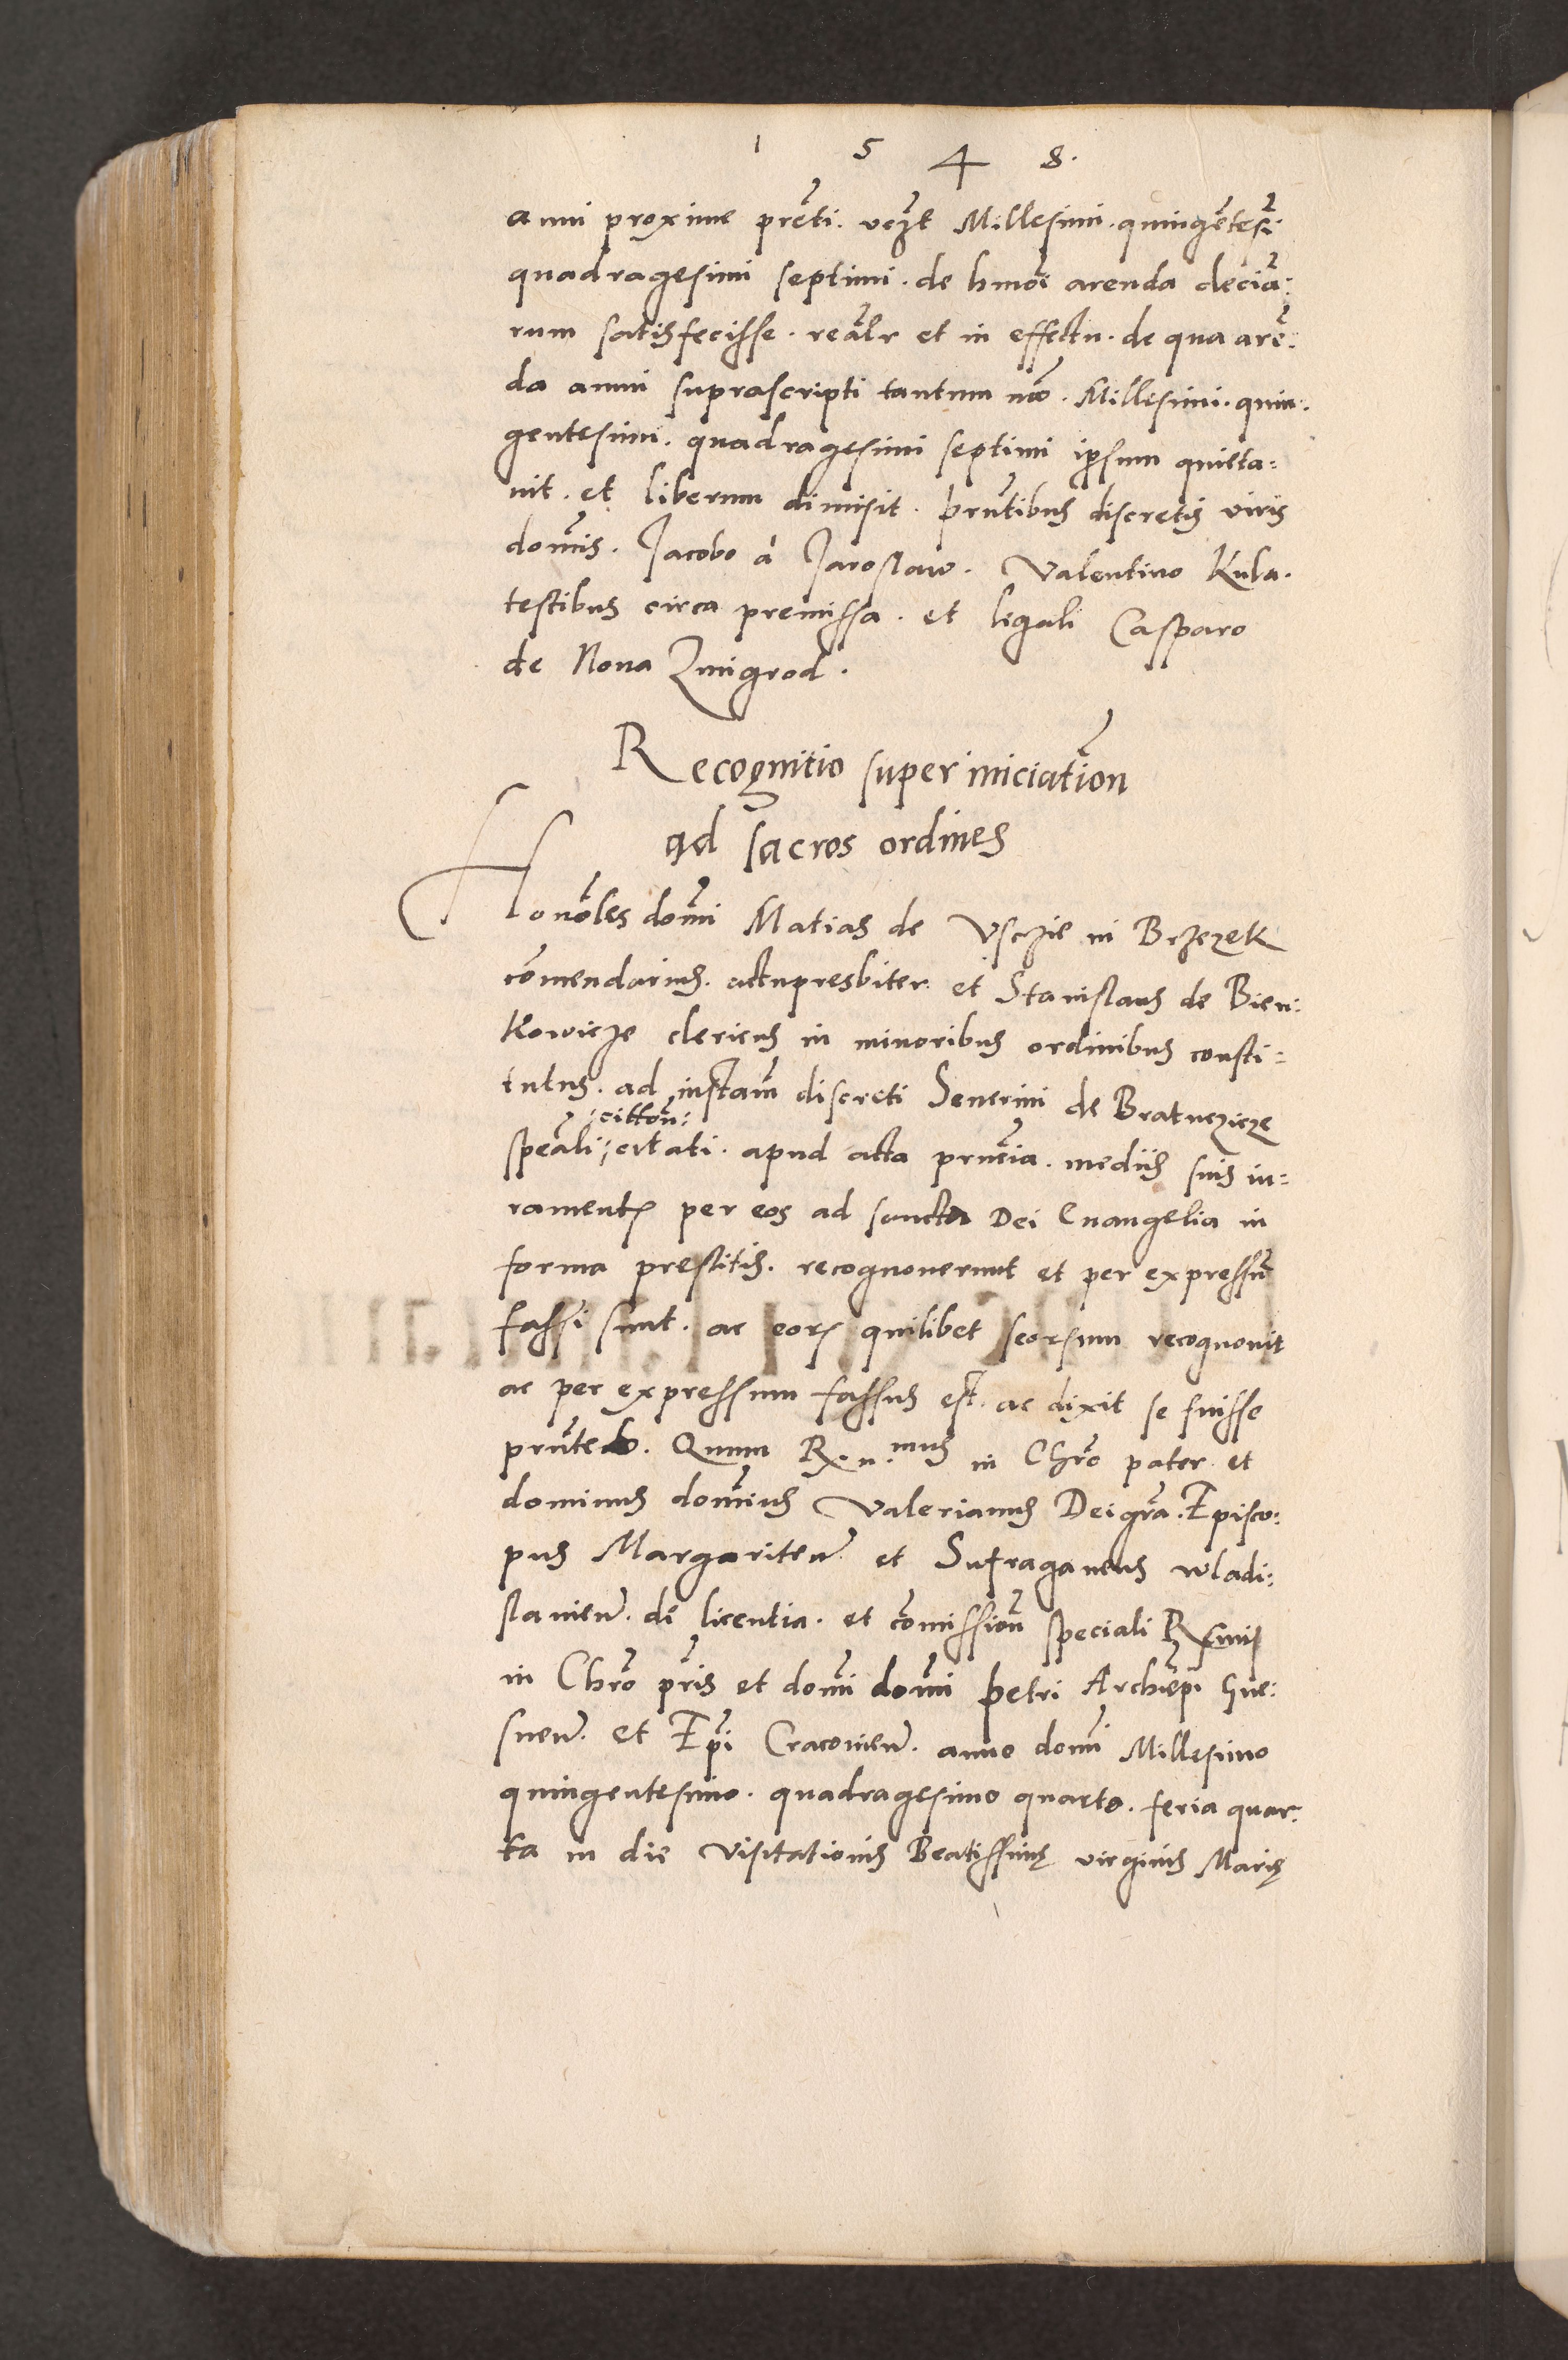 1 5 4 8.
anni proxime prẽti. vcz̃t Millesimi. quingẽtesĩ
quadragesimi septimi. de hmõi arenda deciã:
rum satisfecisse. reãlr et in effectu. de qua arẽ:
da anni suprascripti tantum nõ. Millesimi. quin:
gentesimi. quadragesimi septimi ipsum quieta:
uit. et liberum dimisit. prñtibus discretis viris
domĩs. Jacobo a Jaroslaw. Valentino Kula.
testibus circa premissa. et legali Casparo
de Noua Zmigrod.
Recognitio super iniciatiõn
ad sacros ordines
Honõles domĩ Matias de Vsczie in Brzezek
cõmendarius. actupresbiter et Stanislaus de Bien:
kowicze clericus in minoribus ordinibus consti:
tutus. ad instam̃ discreti Seuerini de Bratuczicze
:cittõn:
speãli: citati. apud acta prñcia. mediis suis iu:
ramentꝭ per eos ad sancta Dei Euangelia in
forma prestitis. recognouerunt et per expressũ
fassi sunt. ac eorꝭ quilibet seorsum recognouit
ac per expressum fassus est. ac dixit se fuisse
prñteb. Quum Rx.n.mus in Chrõ pater et
dominus domĩus Valerianus Dei grã. Episco:
pus Margariteñ. et Sufraganeus wladi:
slauieñ. de licentia. et cõmissioñ speciali Rx̃mi
in Chrõ pr̃is et domĩ domĩ Petri Archiep̃i Gne:
sneñ. et Ep̃i Cracouieñ. anno domĩ Millesimo
quingentesimo. quadragesimo quarto. feria quar:
ta in die visitationis Beatissimę virginis Marię